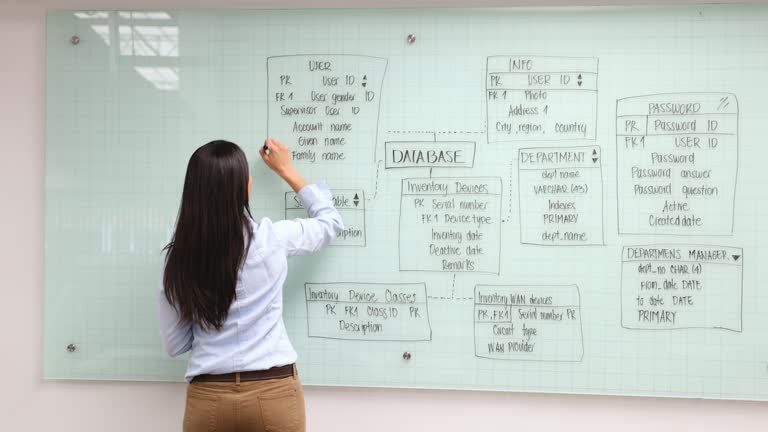 USER
PK User ID
FK 1 User gender ID
Supervisor User ID
Account name
Given name
Family name
DATABASE
INFO
PK USER ID
FK 1 Photo
Address 1
City, region, country
PASSWORD
PK Password ID
FK 1 USER ID
Password
Password answer
Password question
Active
Created date
DEPARTMENT
dept name
VARCHAR
Indexes
PRIMARY
dept_name
Inventory Devices
PK Serial number
FK 1 Device type
Inventory date
Deactive date
Remarks
DEPARTMENS MANAGER
dept_no CHAR (4)
from_date DATE
to date DATE
PRIMARY
Inventory Device Classes
PK FK1 Class ID PK
Description
Inventory WAN devices
PK, FK1 Serial number PK
Circuit type
WAN Provider